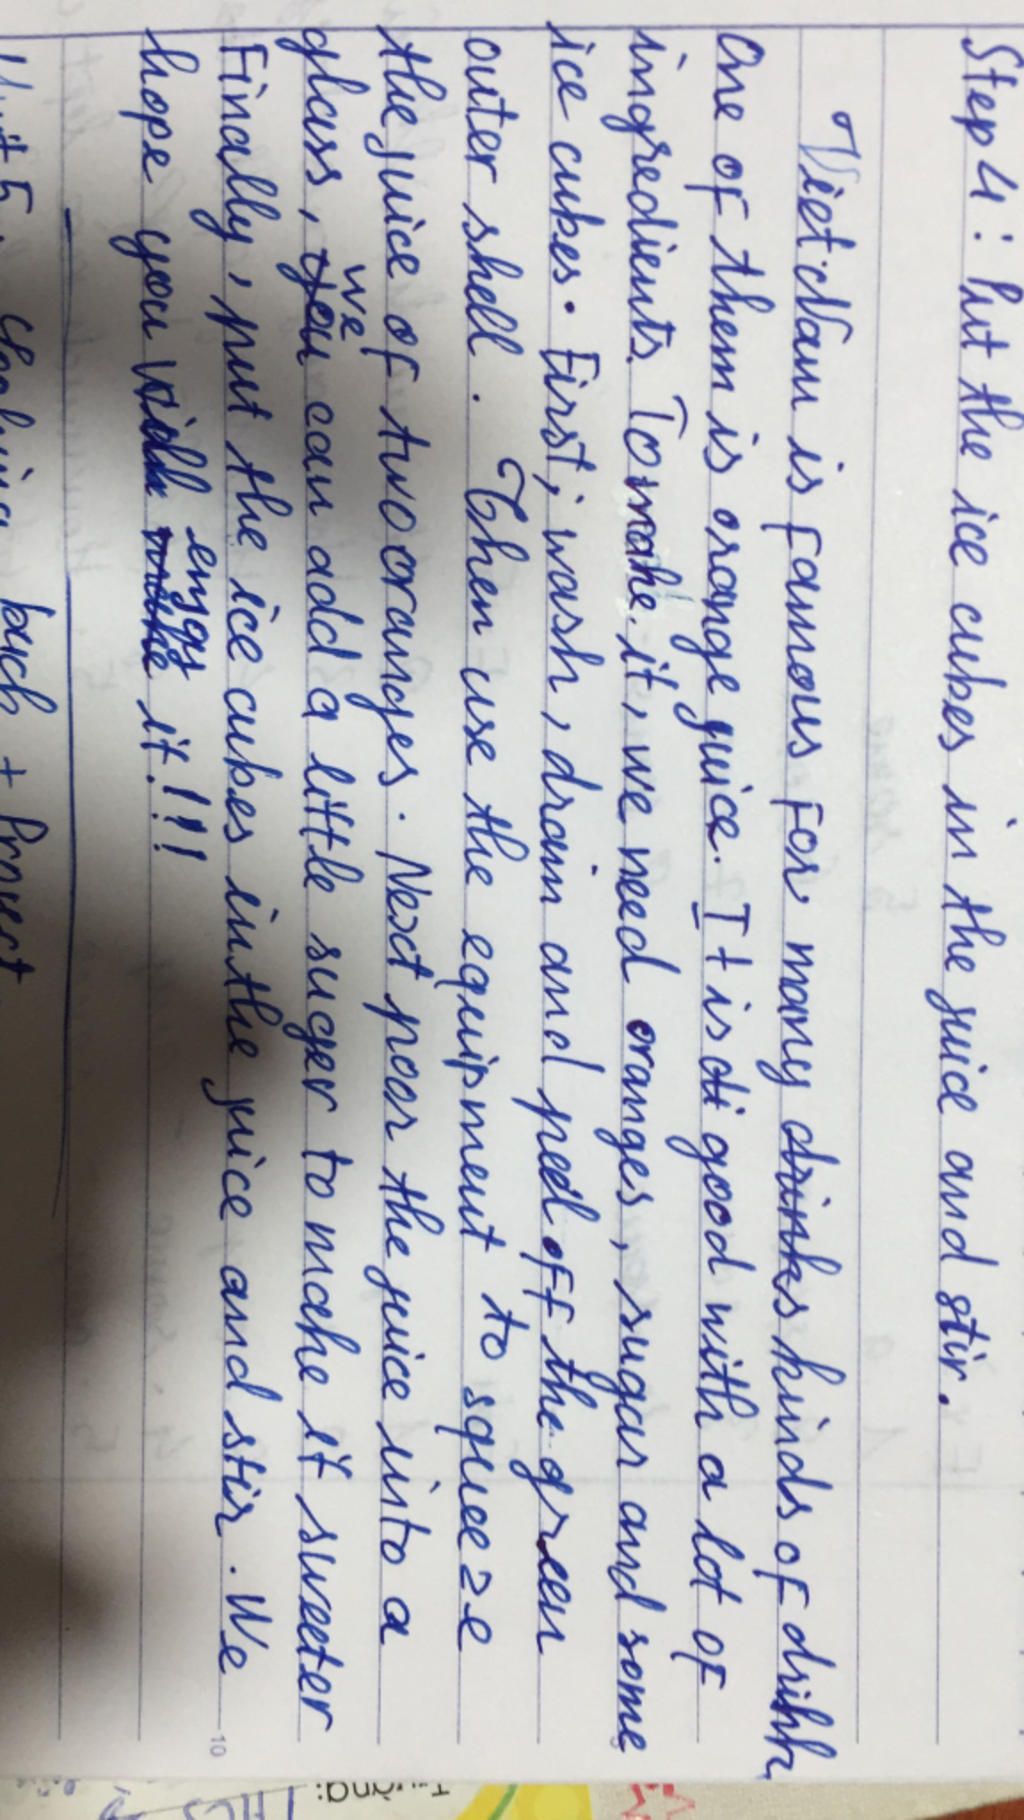 Step 4: Put the ice cubes in the juice and stir.
Viet Nam is famous for many drinks kinds of drink
One of them is orange juice. It is di good with a lot of
ingredients. To make it, we need oranges, sugar and some
ice cubes. First, wash, drain and peel off the green
outer shell. Then use the equipment to squeeze
the juice of two oranges. Next poor the juice into a
glass, you we can add a little suger to make it sweeter
Finally, put the ice cubes in the juice and stir. We
hope you will make enjoy it!!!
10